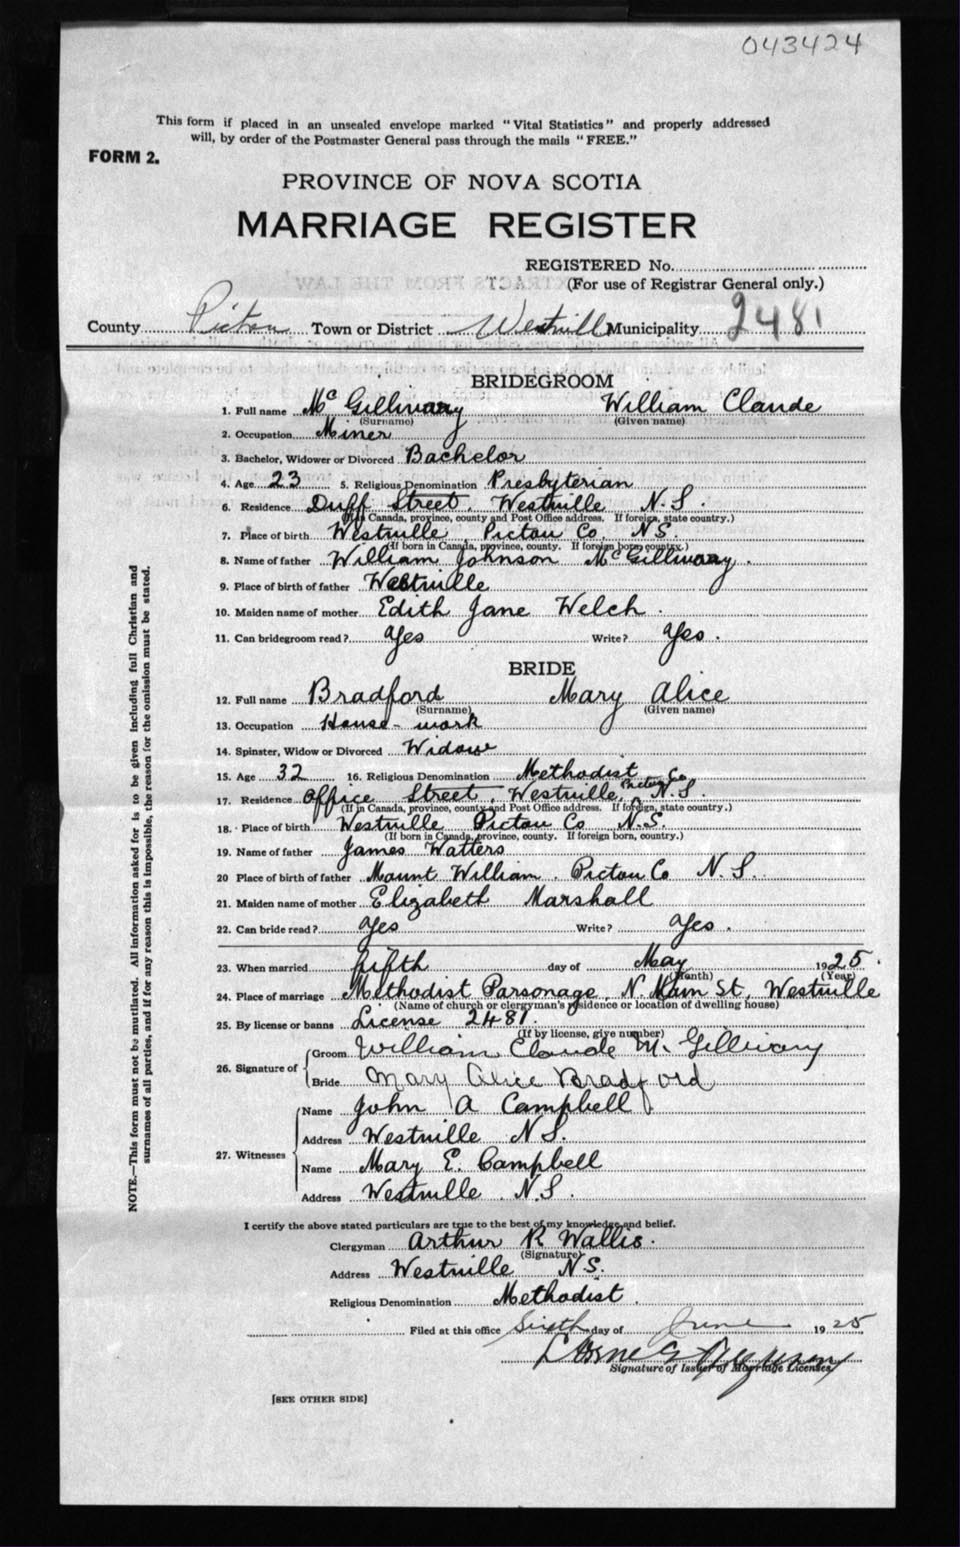 043424
This form if placed in an unsealed envelope marked "Vital Statistics" and properly addressed
will, by order of the Postmaster General pass through the mails "FREE."
FORM 2.
PROVINCE OF NOVA SCOTIA
MARRIAGE REGISTER
REGISTERED No.
(For use of Registrar General only.)
County Pictou Town or District Westville Municipality 2481
BRIDEGROOM
1. Full name McGillivary William Claude
(Surname) (Given name)
2. Occupation Miner
3. Bachelor, Widower or Divorced Bachelor
4. Age 23 5. Religious Denomination Presbyterian
6. Residence Duff Street, Westville N.S.
(If in Canada, province, county and Post Office address. If foreign, state country.)
7. Place of birth Westville Pictou Co. N.S.
(If born in Canada, province, county. If foreign born, country.)
8. Name of father William Johnson McGillivary.
9. Place of birth of father Westville
10. Maiden name of mother Edith Jane Welch.
11. Can bridegroom read? Yes Write? Yes.
BRIDE
12. Full name Bradford Mary Alice
(Surname) (Given name)
13. Occupation House-work
14. Spinster, Widow or Divorced Widow
15. Age 32 16. Religious Denomination Methodist
17. Residence Office Street, Westville, Pictou Co N.S.
(If in Canada, province, county and Post Office address. If foreign, state country.)
18. Place of birth Westville Pictou Co N.S.
(If born in Canada, province, county. If foreign born, country.)
19. Name of father James Watters
20 Place of birth of father Mount William. Pictou Co N.S.
21. Maiden name of mother Elizabeth Marshall
22. Can bride read? Yes Write? Yes.
23. When married fifth day of May 1925.
(Month) (Year)
24. Place of marriage Methodist Parsonage, N. Main St, Westville
(Name of church or clergyman's residence or location of dwelling house)
25. By license or banns License 2481.
(If by license, give number)
26. Signature of
Groom William Claude McGillivary
Bride Mary Alice Bradford
27. Witnesses
Name John A Campbell
Address Westville N.S.
Name Mary E. Campbell
Address Westville. N.S.
I certify the above stated particulars are true to the best of my knowledge and belief.
Clergyman Arthur R Wallis.
(Signature)
Address Westville N.S.
Religious Denomination Methodist.
Filed at this office Sixth day of June 1925
Signature of Issuer of Marriage Licenses
[SEE OTHER SIDE]
NOTE.—This form must not be mutilated. All information asked for is to be given including full Christian and
surnames of all parties, and if for any reason this is impossible, the reason for the omission must be stated.